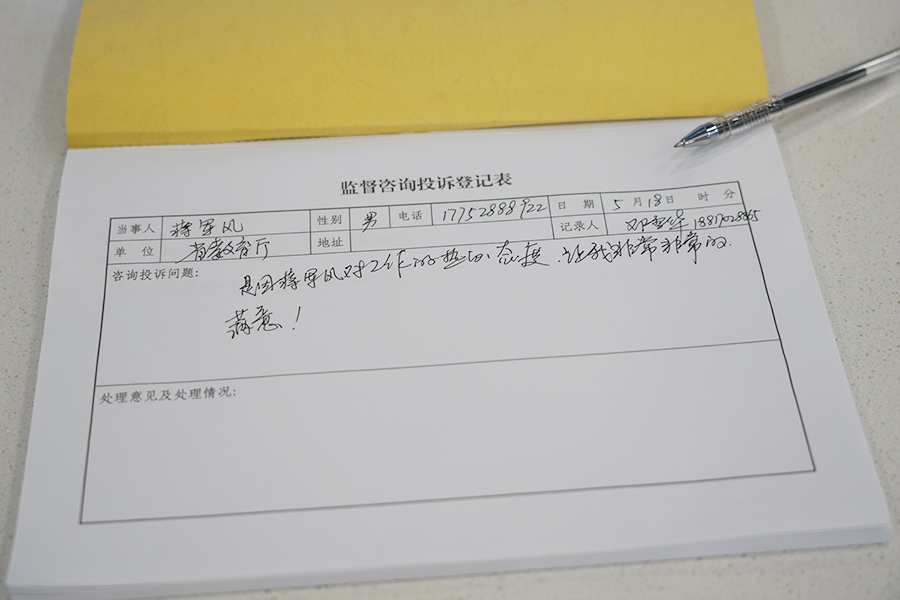 监督咨询投诉登记表
当事人 蒋军风 性别 男 电话 17752888922 日 期 5 月 18 日 时 分
单 位 省教育厅 地址 记录人
咨询投诉问题:
是因蒋军风对工作的热切态度.让我非常非常的
满意!
处理意见及处理情况: